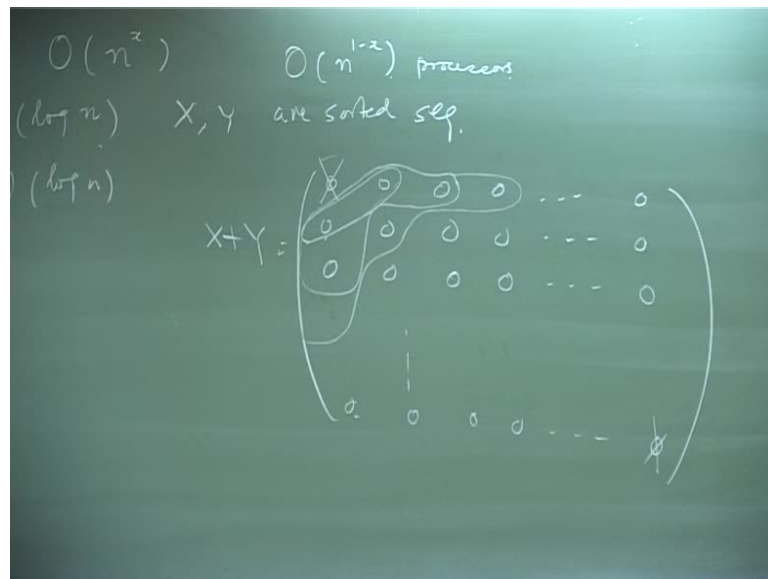 O(n^x) O(n^{1-x}) processors
(log n) X, Y are sorted seq.
) (log n)
X+Y = ( o o o o --- o )
o o o o --- o
o o o o --- o
o o o o --- o